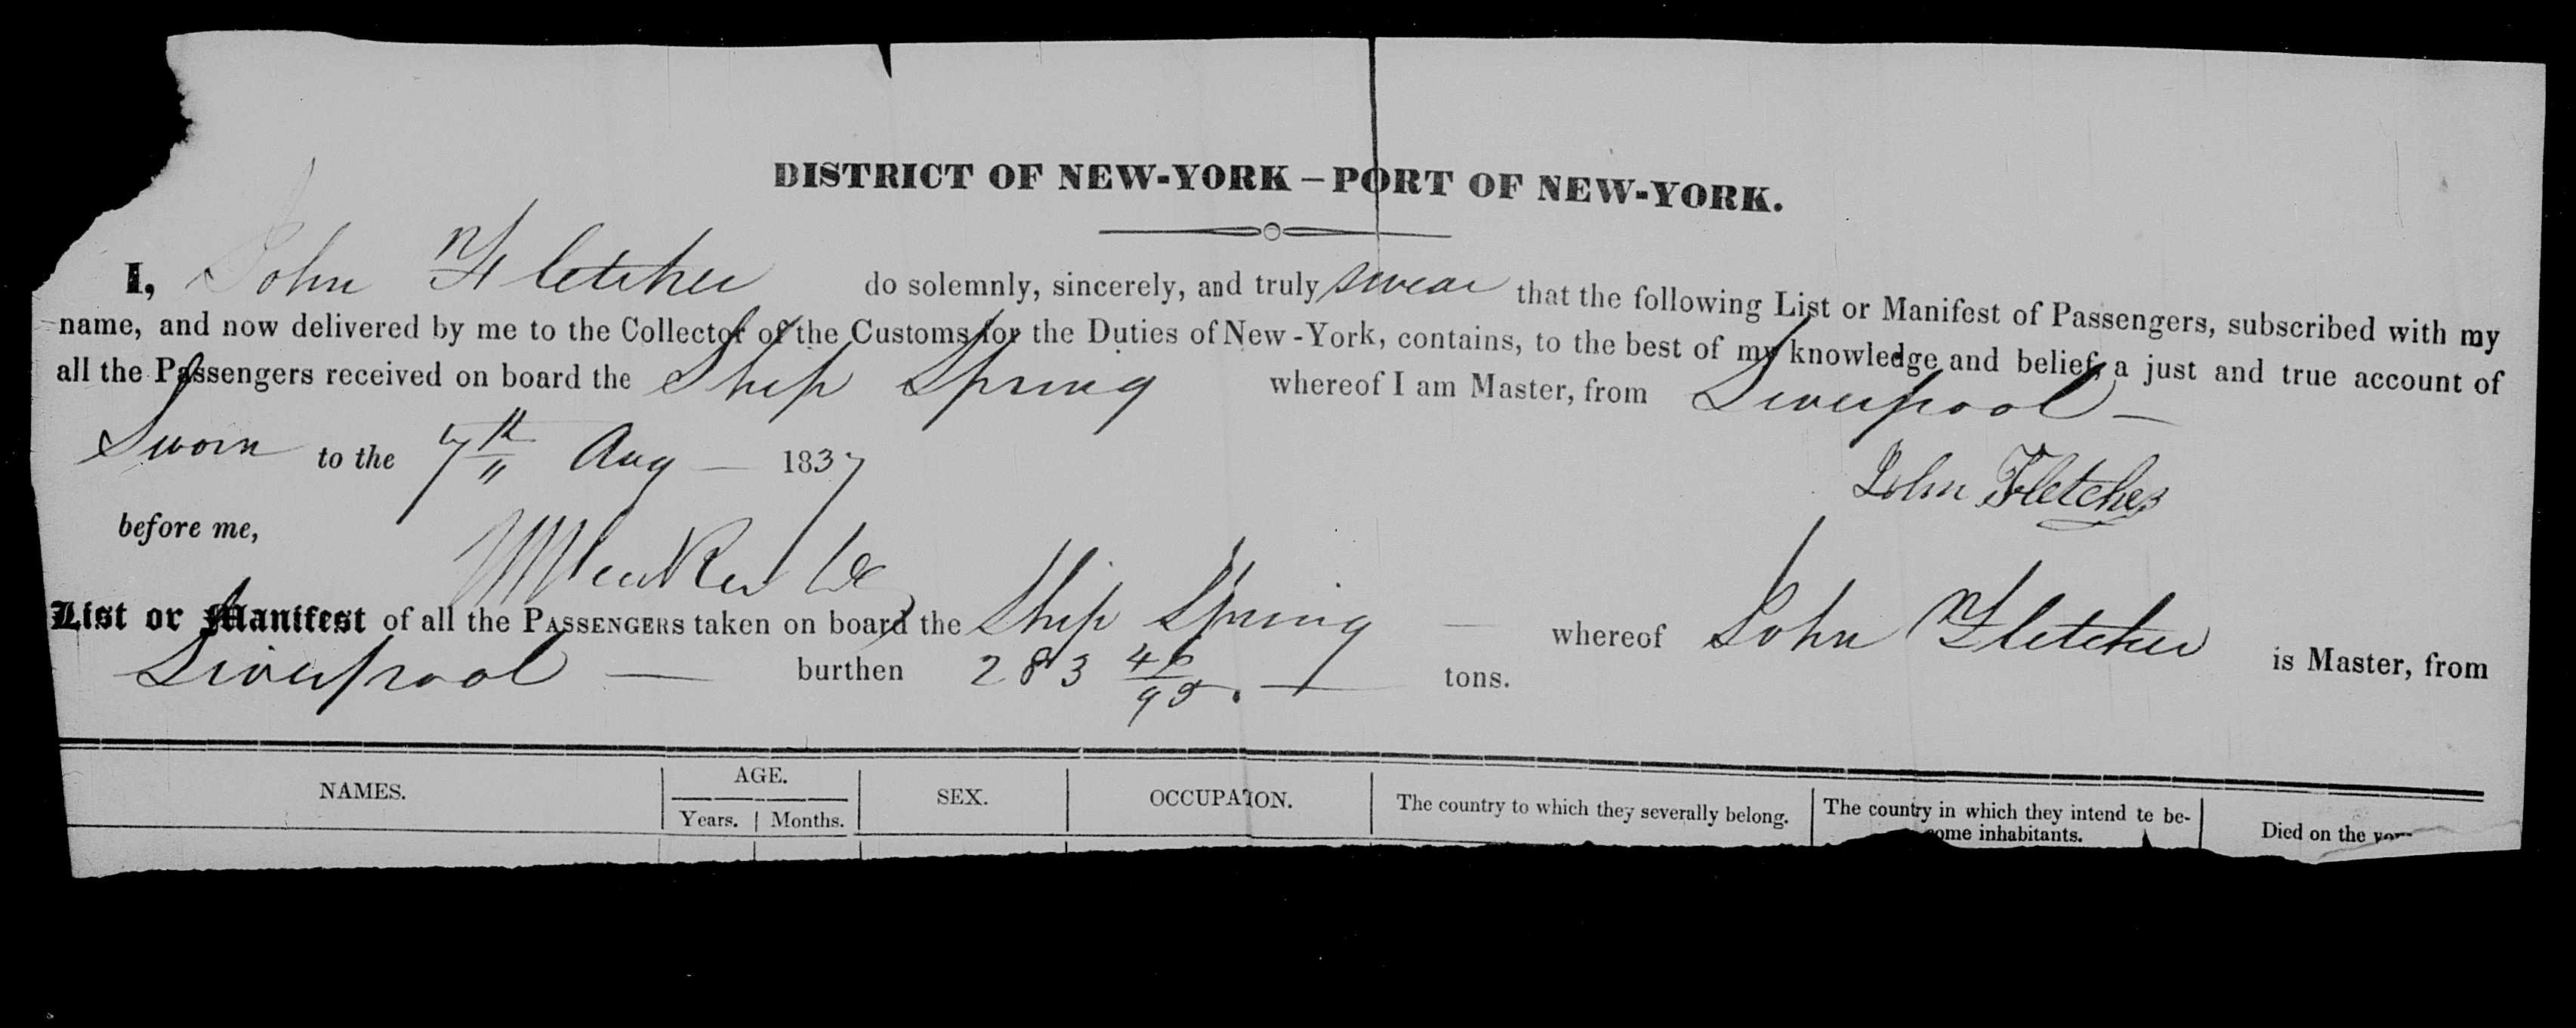 DISTRICT OF NEW-YORK – PORT OF NEW-YORK.
I, John Fletcher do solemnly, sincerely, and truly swear that the following List or Manifest of Passengers, subscribed with my
name, and now delivered by me to the Collector of the Customs for the Duties of New-York, contains, to the best of my knowledge and belief, a just and true account of
all the Passengers received on board the Ship Spring whereof I am Master, from Liverpool –
Sworn to the 7th Aug – 1837
John Fletcher
before me,
List or Manifest of all the PASSENGERS taken on board the Ship Spring — whereof John Fletcher is Master, from
Liverpool — burthen 283 46/95. — tons.
NAMES. AGE. SEX. OCCUPATION. The country to which they severally belong. The country in which they intend to be-
Years. Months. come inhabitants. Died on the